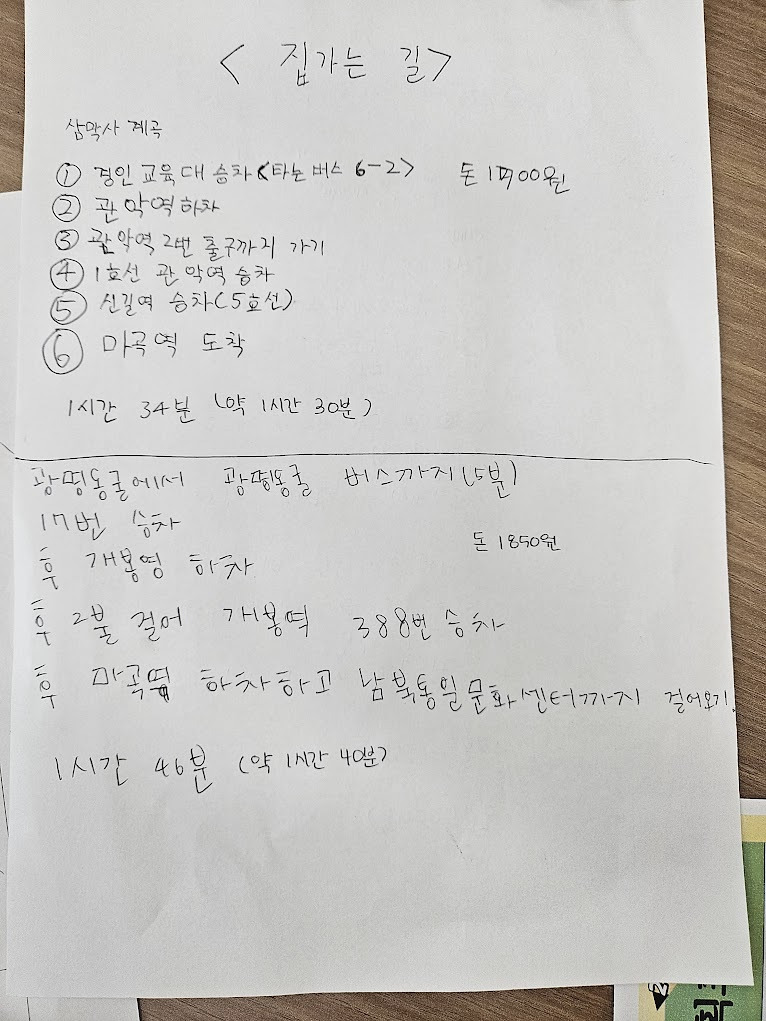 < 집가는 길>
삼막사 계곡
① 경인 교육대 승차<타는 버스 6-2> 돈 1900원
② 관악역 하차
③ 관악역 2번 출구까지 가기
④ 1호선 관악역 승차
⑤ 신길역 승차(5호선)
⑥ 마곡역 도착
1시간 34분 (약 1시간 30분)
광명동굴에서 광명동굴 버스까지(5분)
17번 승차
돈 1850원
후 개봉영 하차
후 2분 걸어 개봉역 388번 승차
후 마곡역 하차하고 남북통일문화센터까지 걸어오기.
1시간 46분 (약 1시간 40분)